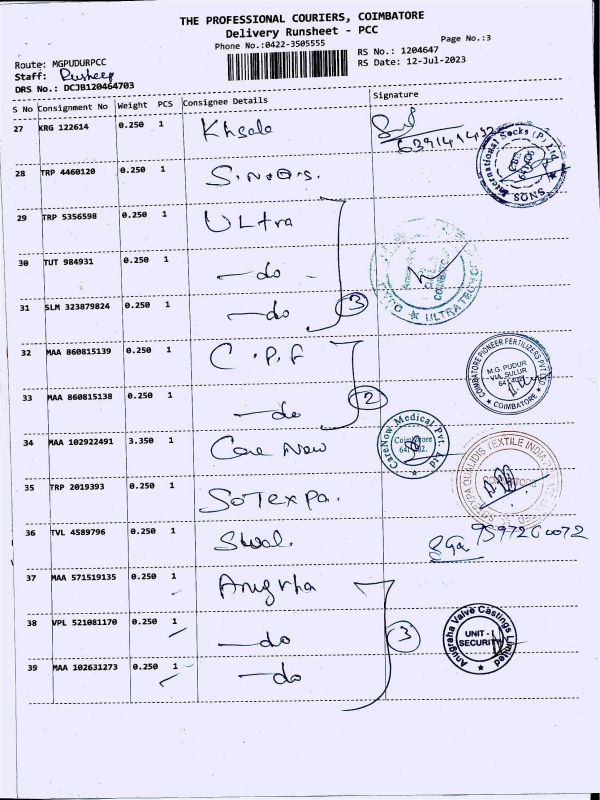 THE PROFESSIONAL COURIERS, COIMBATORE
Delivery Runsheet - PCC
Phone No.:0422-3505555
Page No.:3
Route: MGPUDURPCC
RS No.: 1204647
Staff:
RS Date: 12-Jul-2023
DRS No.: DCJB120464703
S No Consignment No Weight PCS Consignee Details Signature
27 KRG 122614 0.250 1
28 TRP 4460120 0.250 1 S.N.Q.S.
International Socks (P) Ltd. SNQS
29 TRP 5356598 0.250 1 Ultra
30 TUT 984931 0.250 1 -do-
31 SLM 323879824 0.250 1 -do 3
ULTRATECH
32 MAA 860815139 0.250 1 C.P.F
COIMBATORE PIONEER FERTILIZERS PVT
M.G. PUDUR
VIA. SULUR
COIMBATORE
33 MAA 860815138 0.250 1 -do 2
34 MAA 102922491 3.350 1 Care Now
CareNow Medical Pvt. Ltd
Coimbatore
35 TRP 2019393 0.250 1 SoTexpa.
TEXTILE INDIA
36 TVL 4589796 0.250 1
37 MAA 571519135 0.250 1 Anugrha
38 VPL 521081170 0.250 1 -do 3
Anugraha Valve Castings Limited
UNIT - I
SECURITY
39 MAA 102631273 0.250 1 -do